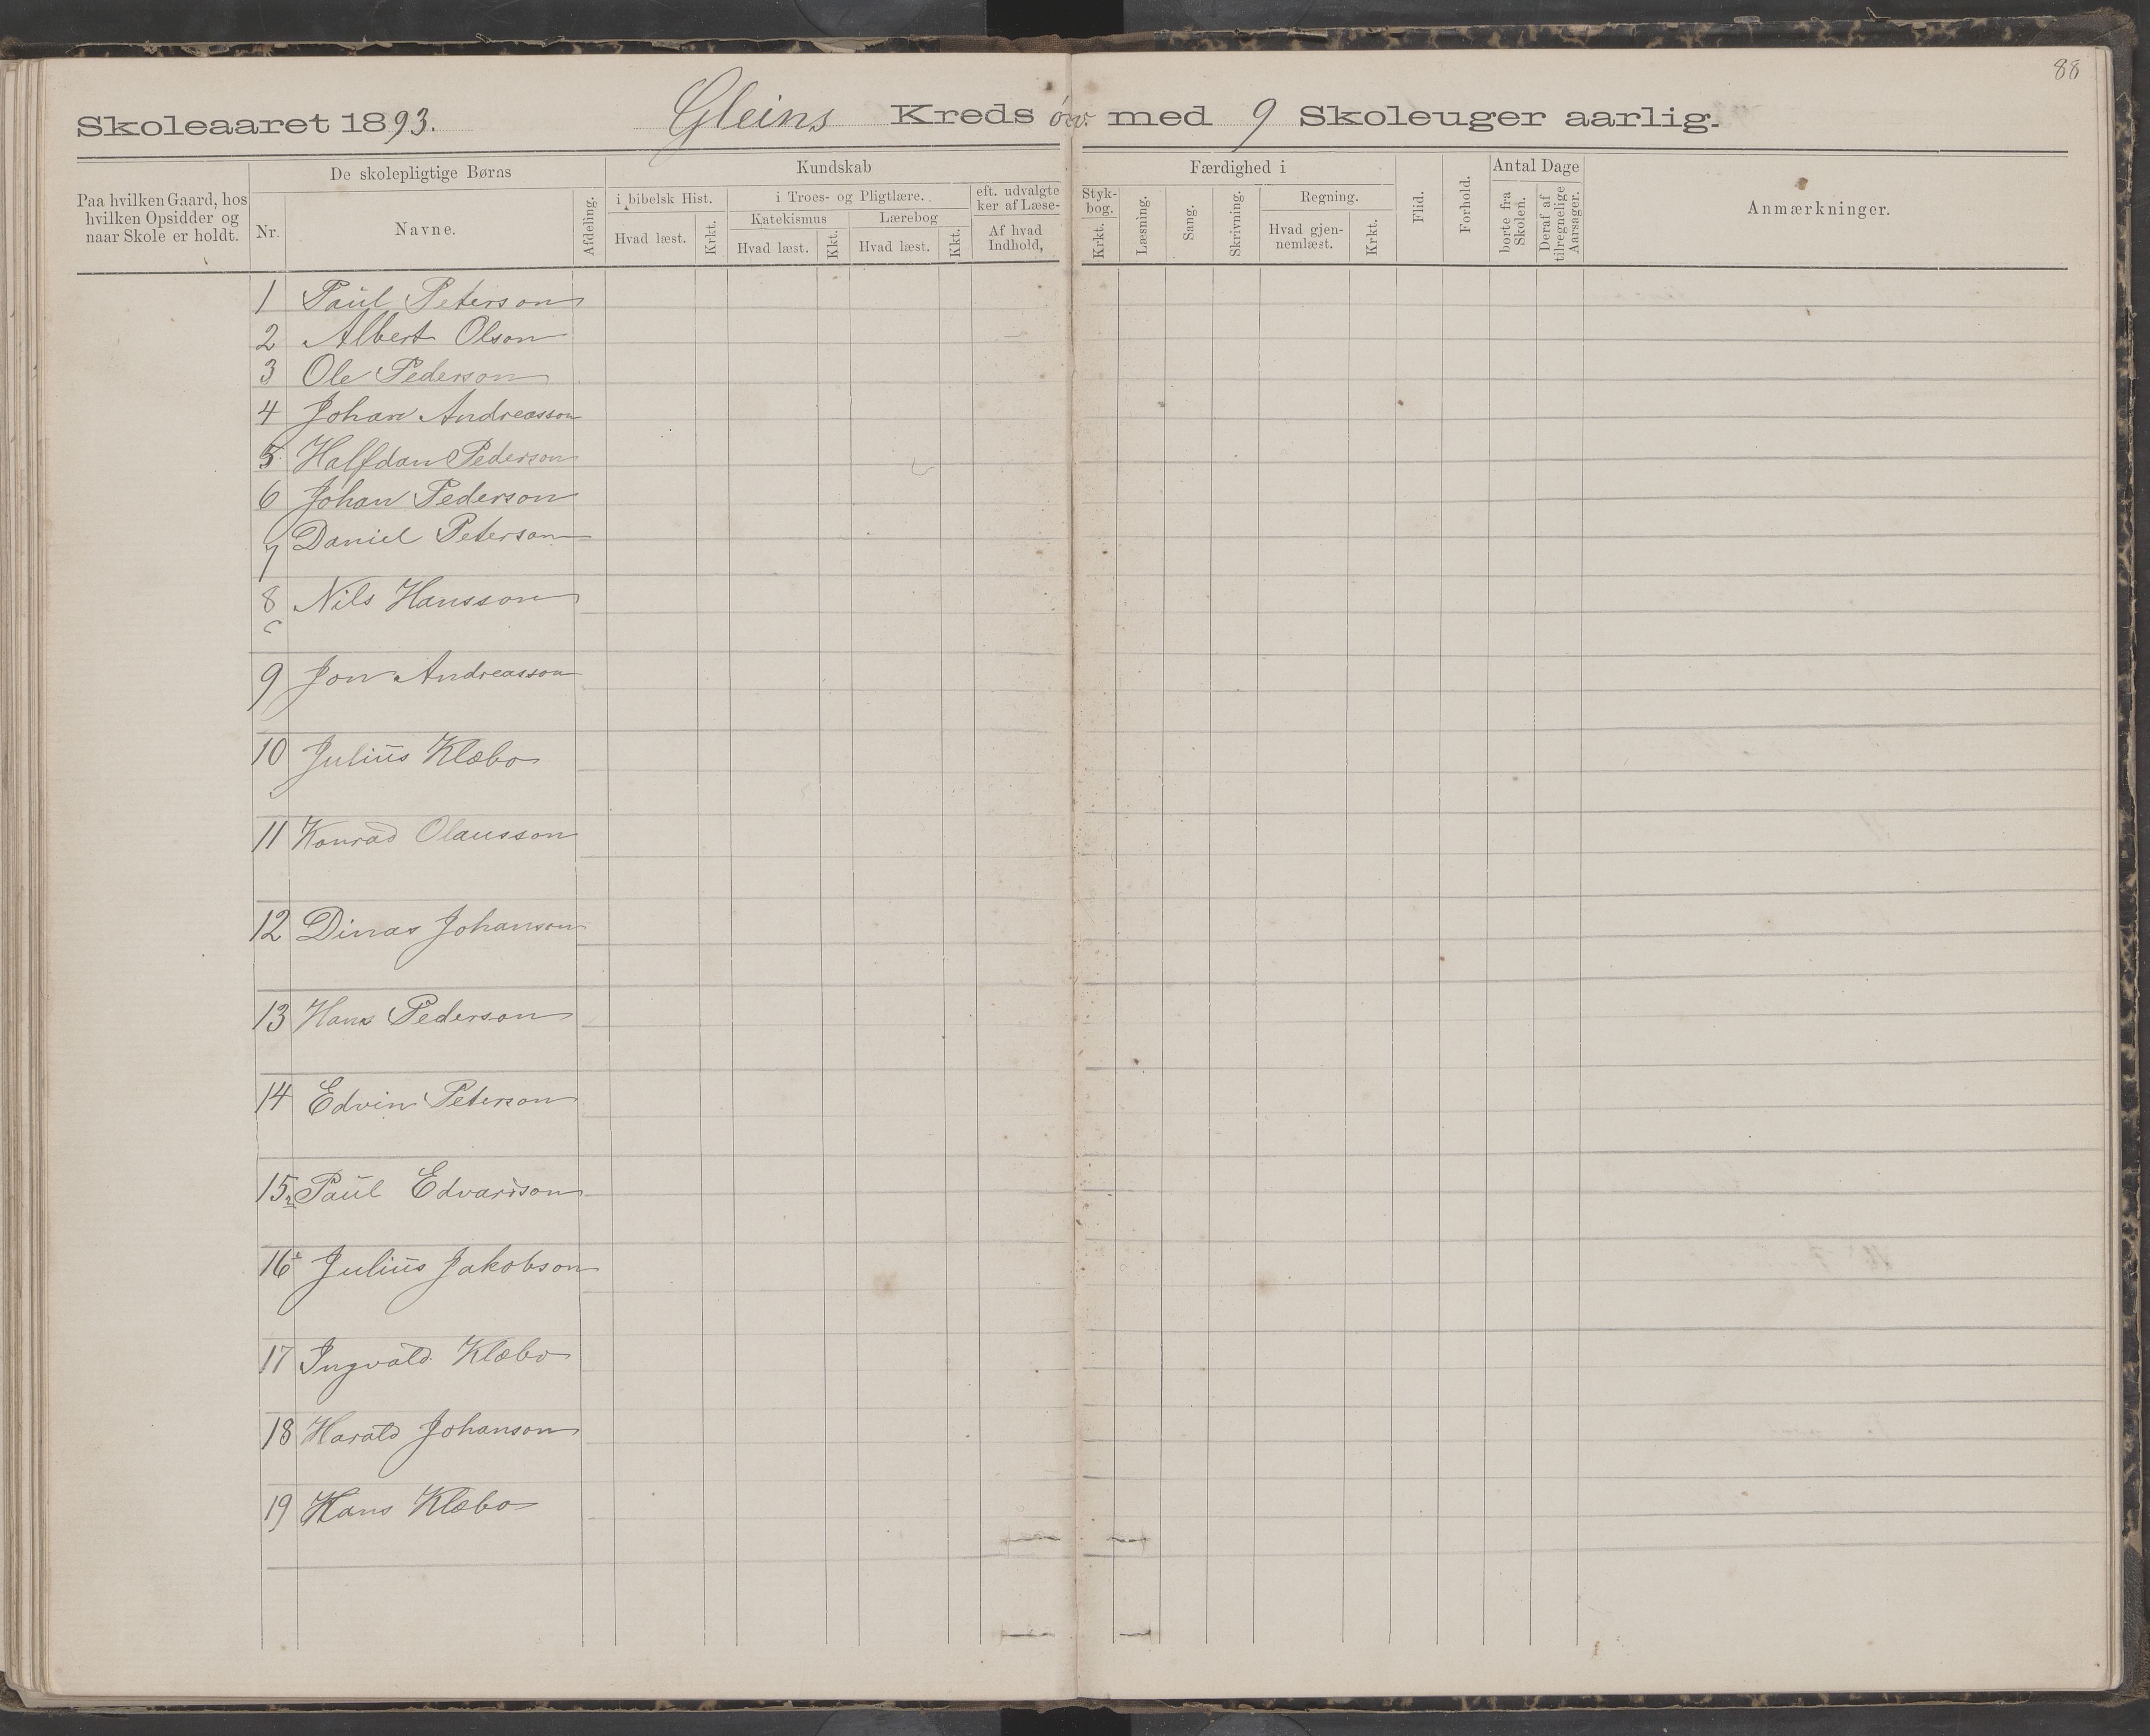 88
Skoleaaret 1893. Gleins Kreds øv. med 9 Skoleuger aarlig.
Paa hvilken Gaard, hos hvilken Opsidder og naar Skole er holdt.
De skolepligtige Børns
Nr.
Navne.
Afdeling.
Kundskab
i bibelsk Hist.
Hvad læst.
Krkt.
i Troes- og Pligtlære.
Katekismus
Hvad læst.
Kkt.
Lærebog
Hvad læst.
Kkt.
eft. udvalgte
ker af Læse-
Af hvad
Indhold,
Færdighed i
Styk-
bog.
Krkt.
Læsning.
Sang.
Skrivning.
Regning.
Hvad gjen-
nemlæst.
Krkt.
Flid.
Forhold.
Antal Dage
borte fra
Skolen.
Deraf af
tilregnelige
Aarsager.
Anmærkninger.
1 Paul Peterson
2 Albert Olson
3 Ole Pederson
4 Johan Andreasson
5 Halfdan Pederson
6 Johan Pederson
7 Daniel Peterson
8 Nils Hansson
9 Jon Andreasson
10 Julius Klæbo
11 Konrad Olausson
12 Dinas Johanson
13 Hans Pederson
14 Edvin Peterson
15 Paul Edvardson
16 Julius Jakobson
17 Ingvald Klæbo
18 Harald Johanson
19 Hans Klæbo